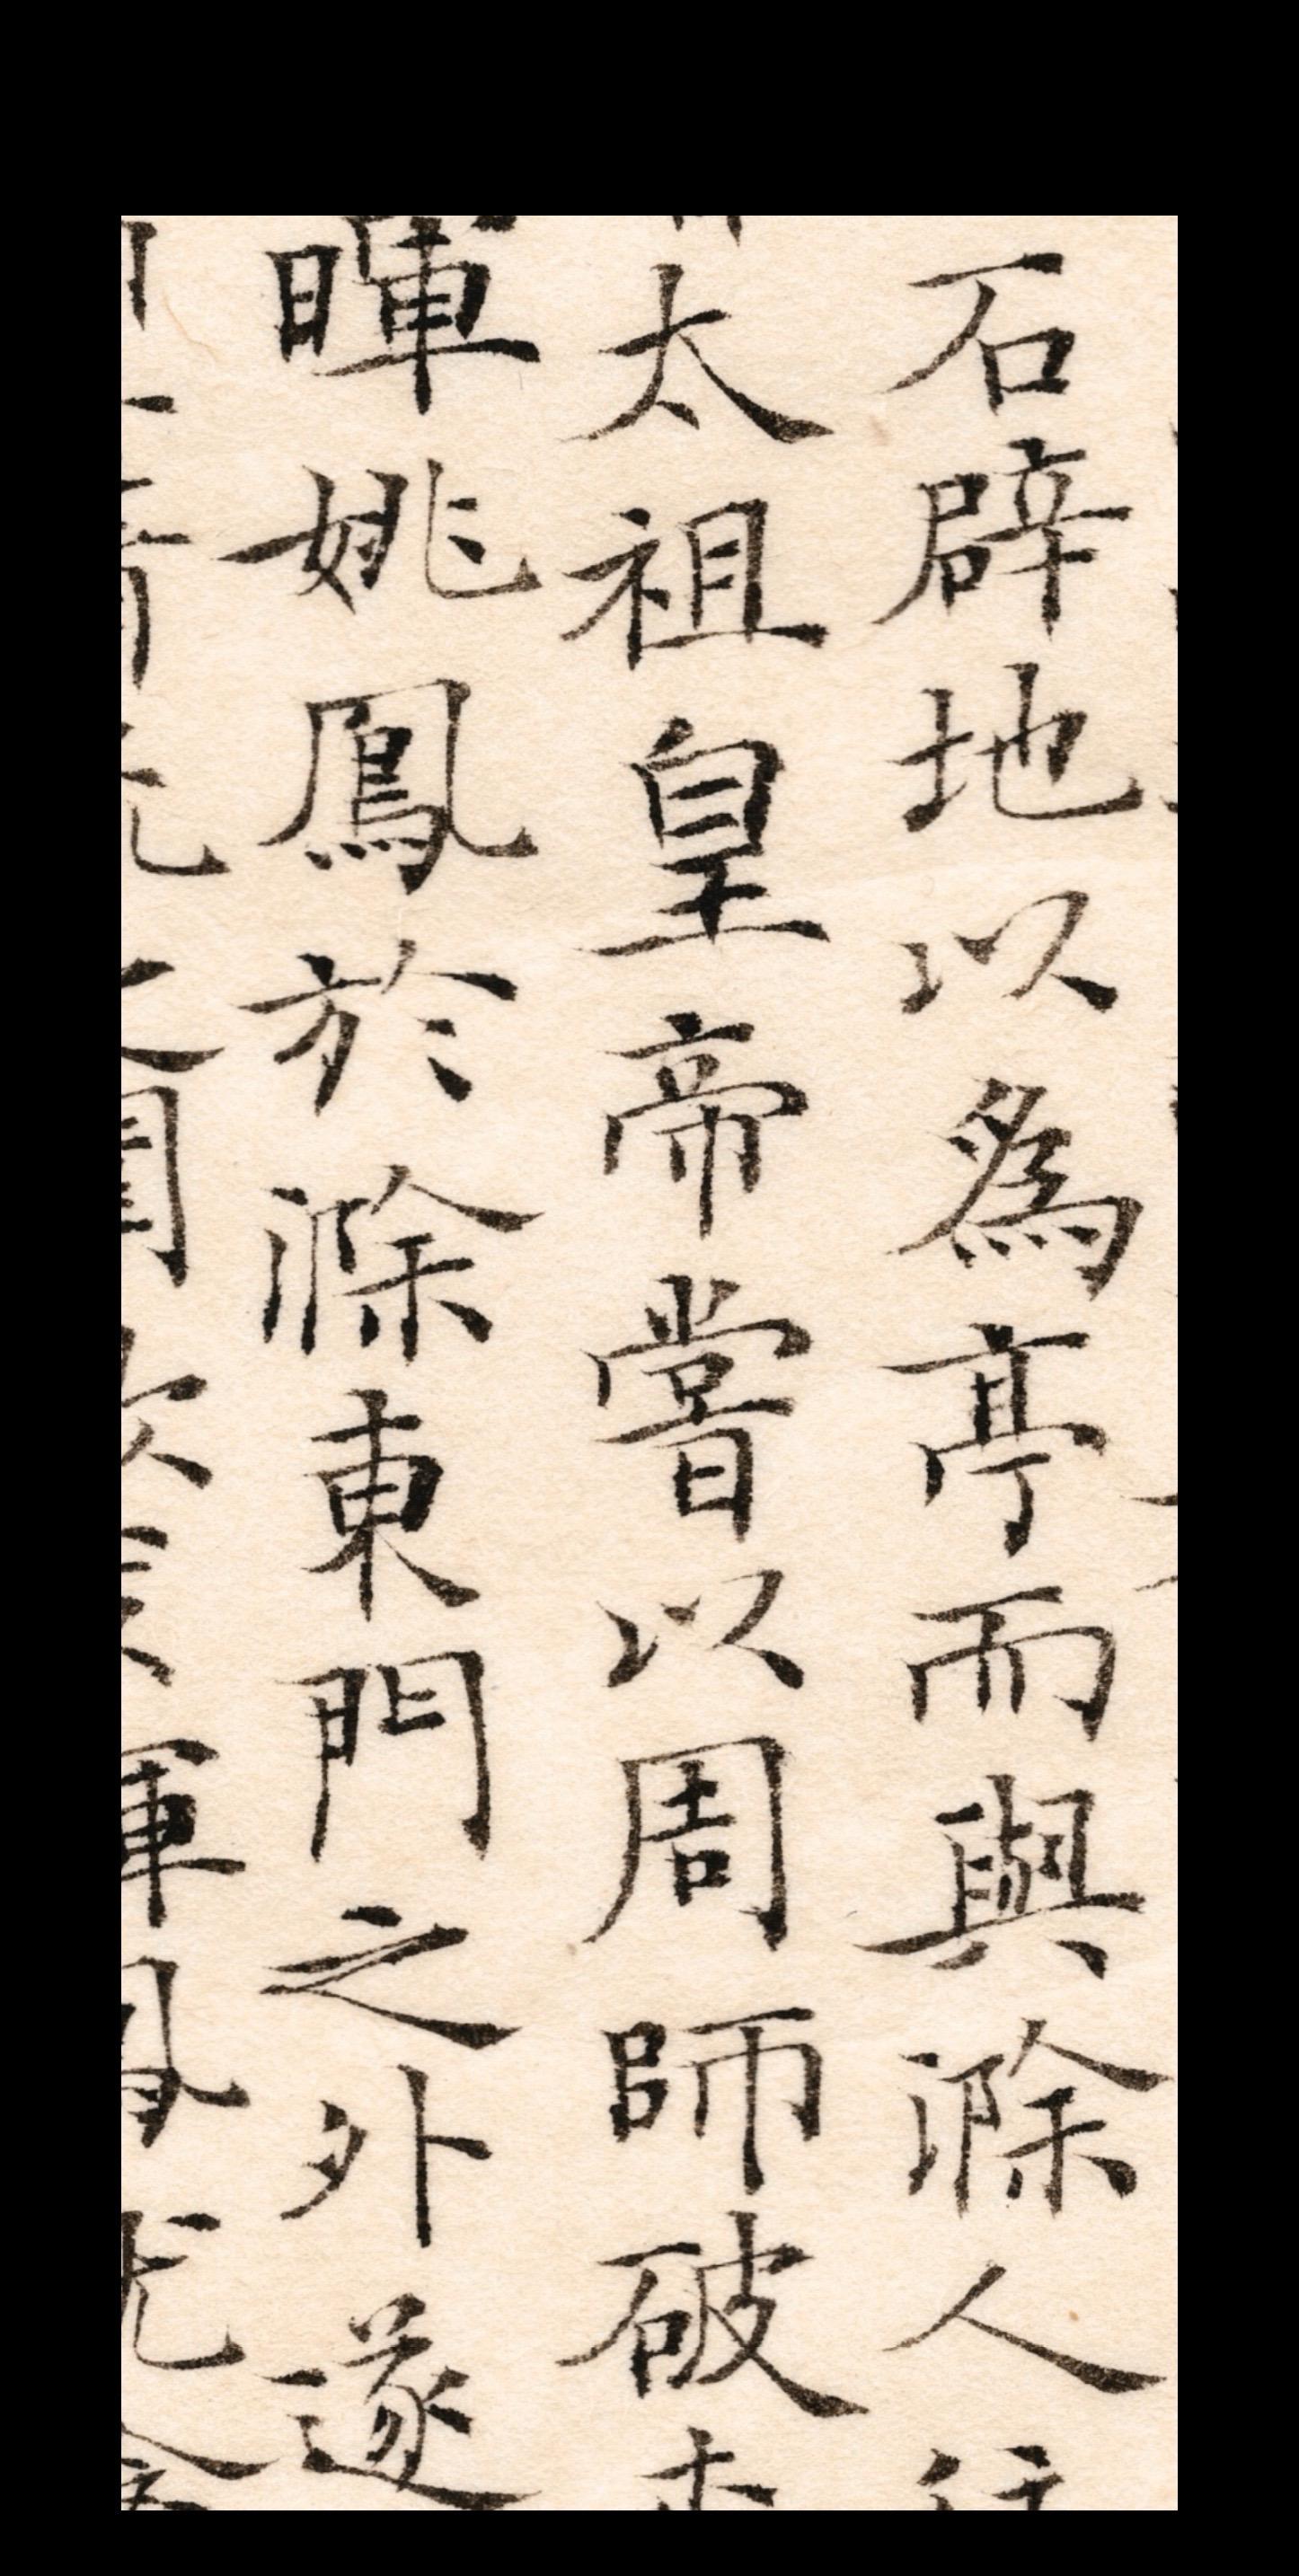 石辟地以為亭而與滁人
太祖皇帝嘗以周師破
暉姚鳳於滁東門之外遂